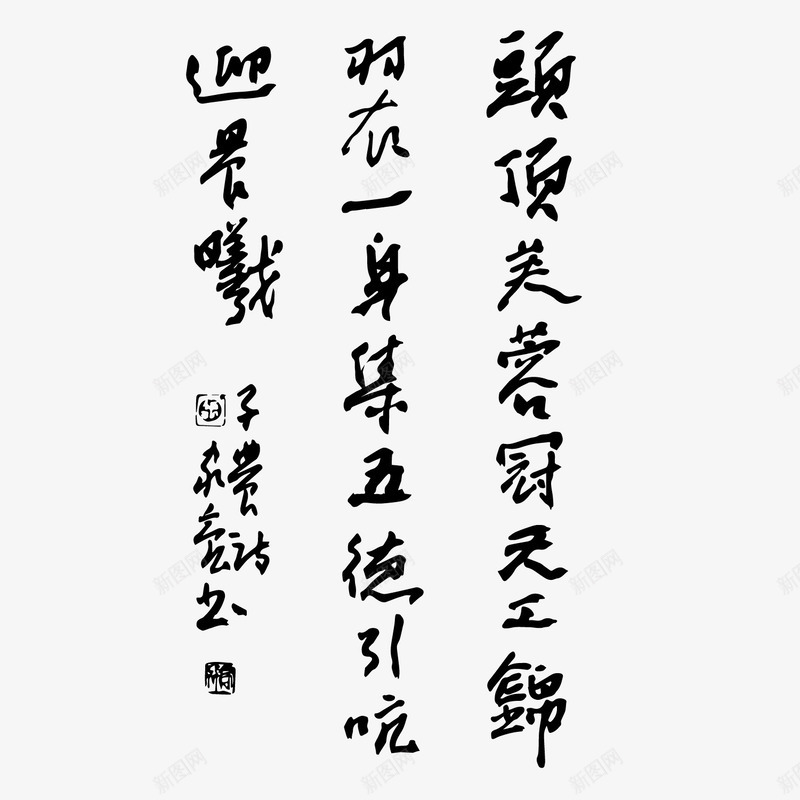 頭頂芙蓉冠天工錦
羽衣一身集五德引吭
迎晨曦
子農詩
永亮书
新图网